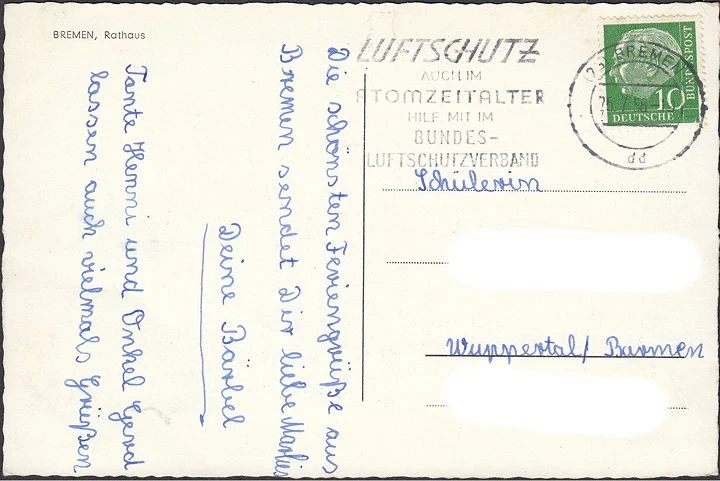 BREMEN, Rathaus
LUFTSCHUTZ
AUCH IM
ATOMZEITALTER
HILF MIT IM
BUNDES-
LUFTSCHUTZVERBAND
BREMEN
dd
10
DEUTSCHE
BUNDESPOST
Schülerin
Wuppertal/Barmen
Die schönsten Feriengrüße aus
Bremen sendet Dir liebe
Deine Bärbel
Tante Henni und Onkel Gerd
lassen auch vielmals Grüßen